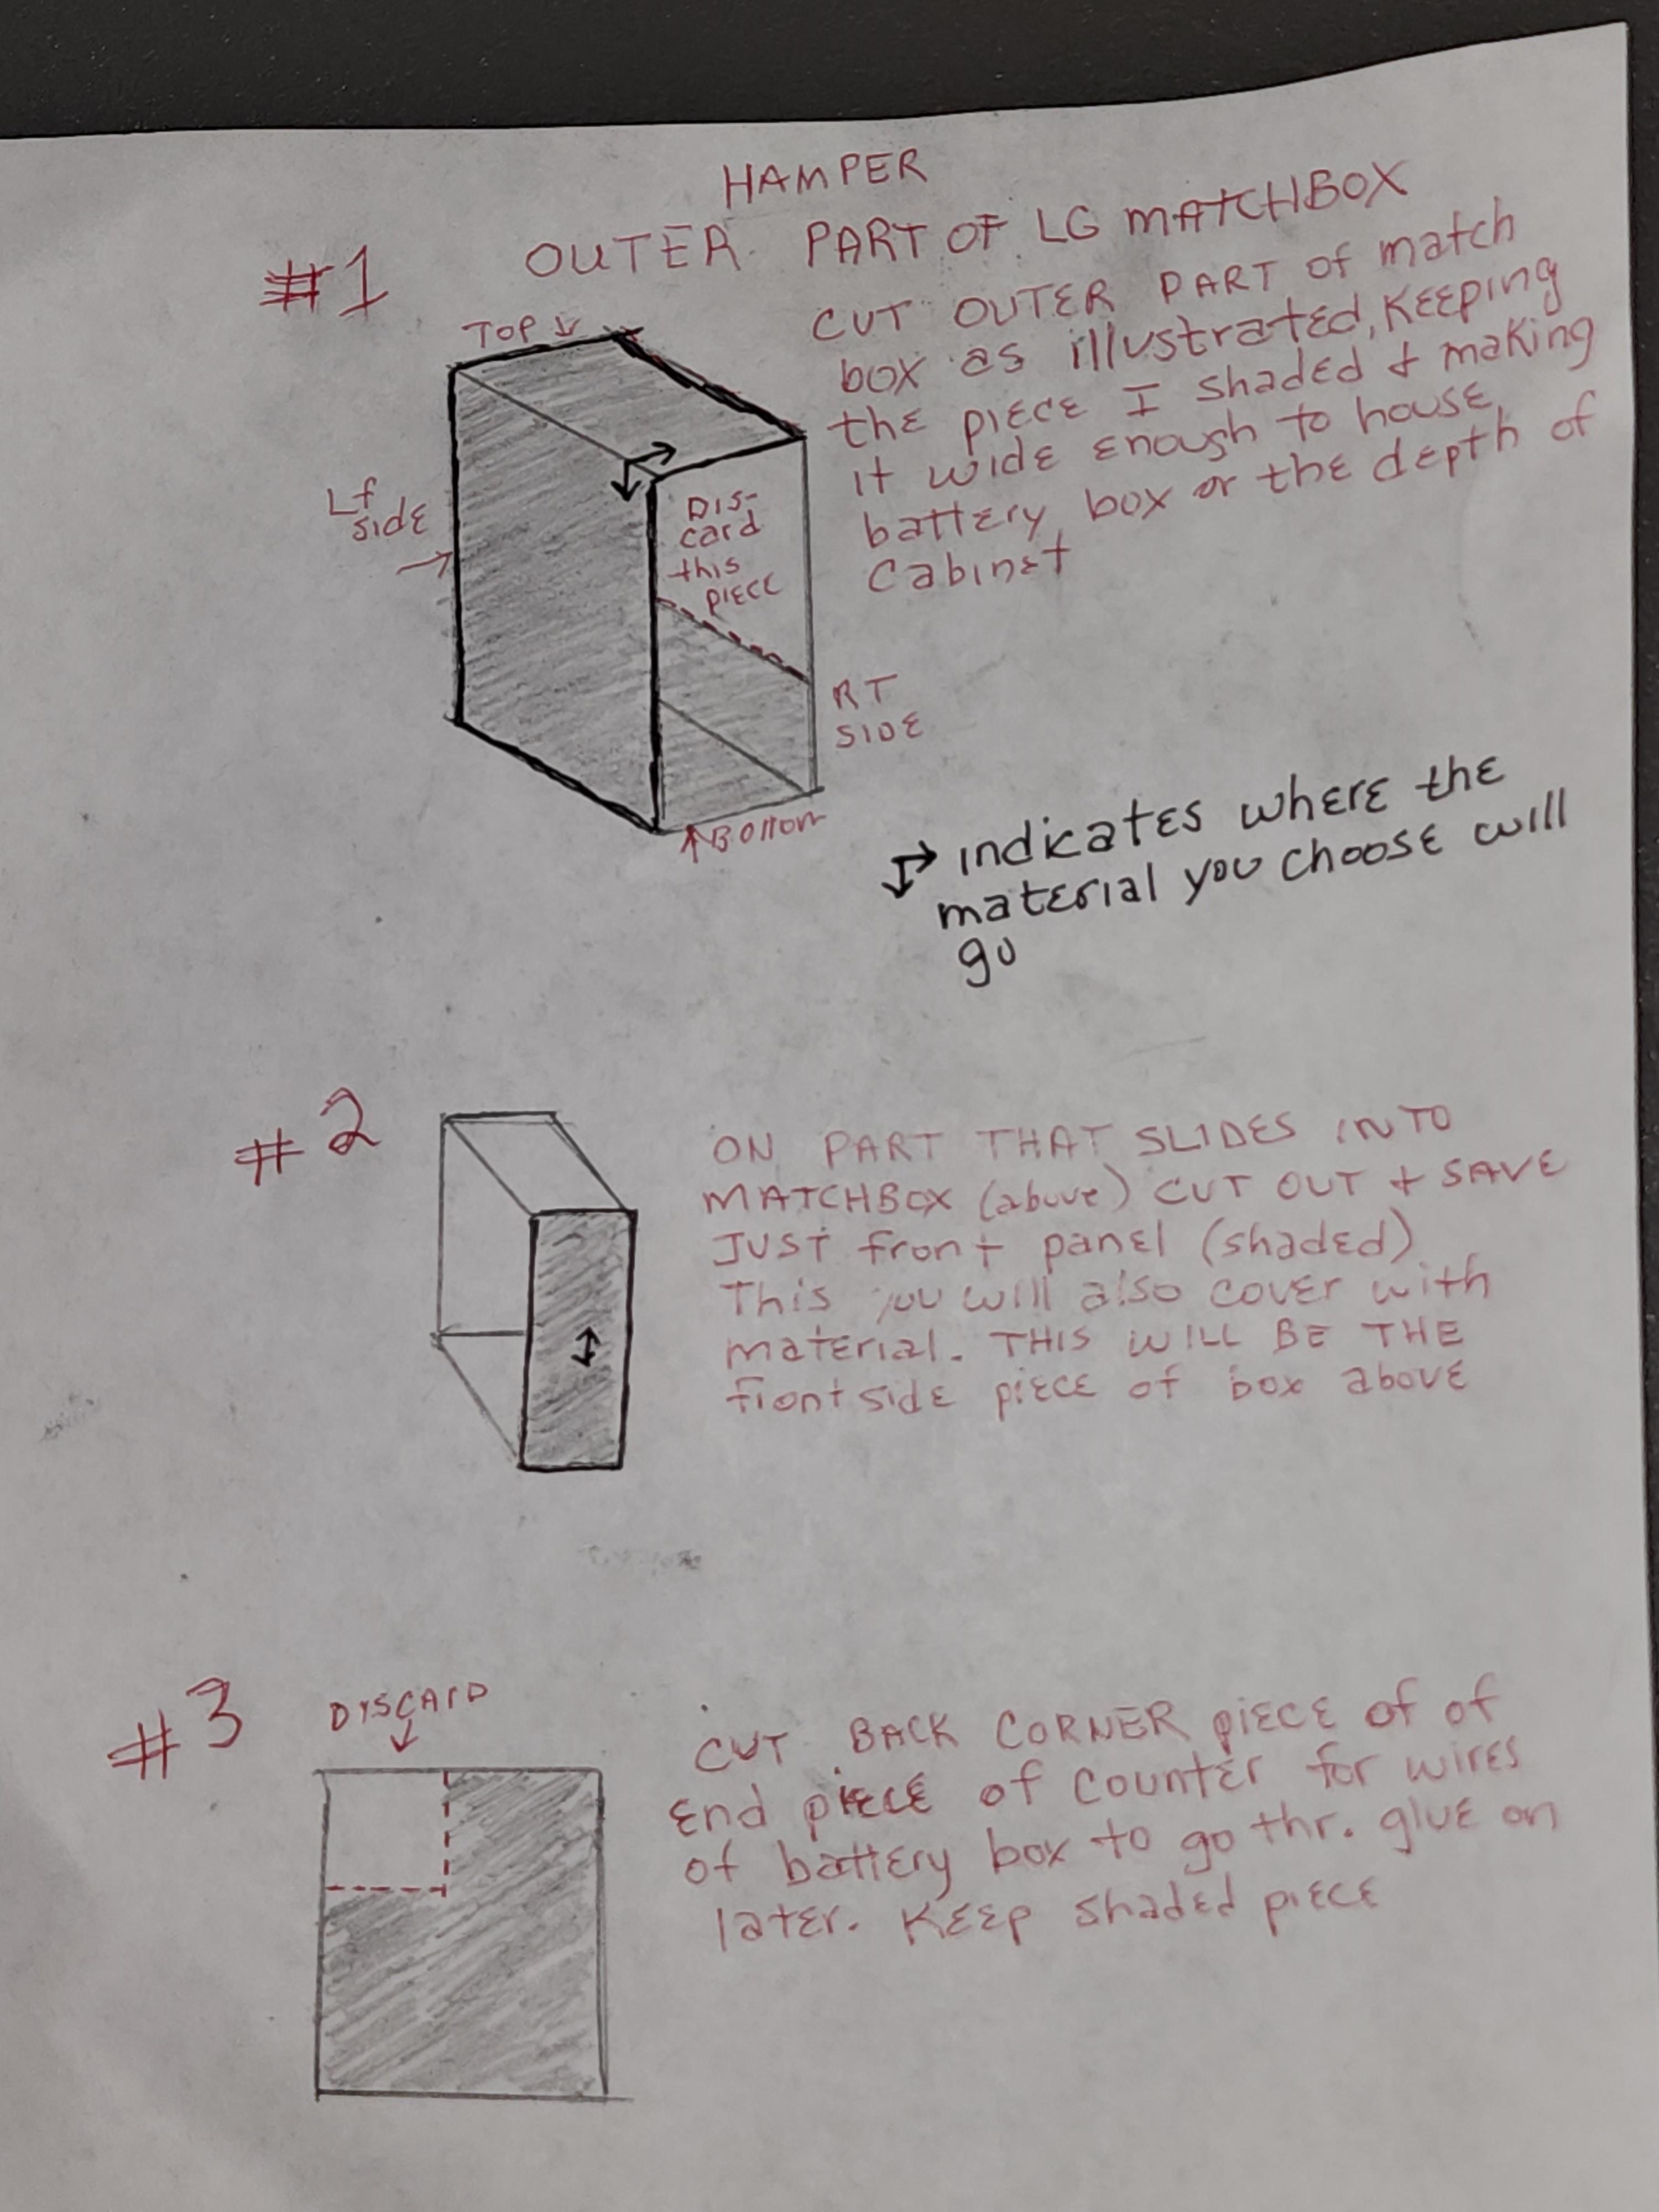 HAMPER
#1
OUTER PART OF LG MATCHBOX
CUT OUTER PART OF match
box as illustrated, KEEPing
the piece I shaded + making
it wide enough to house
battery box or the depth of
cabinet
TOP
Lf
side
Dis-
card
this
piece
RT
SIDE
Bottom
indicates where the
material you choose will
go
#2
ON PART THAT SLIDES INTO
MATCHBOX (above) CUT OUT + SAVE
JUST front panel (shaded)
This you will also cover with
material. THIS WILL BE THE
front side piece of box above
#3
DISCARD
CUT BACK CORNER piece of of
End piece of counter for wires
of battery box to go thr. glue on
later. Keep shaded piece